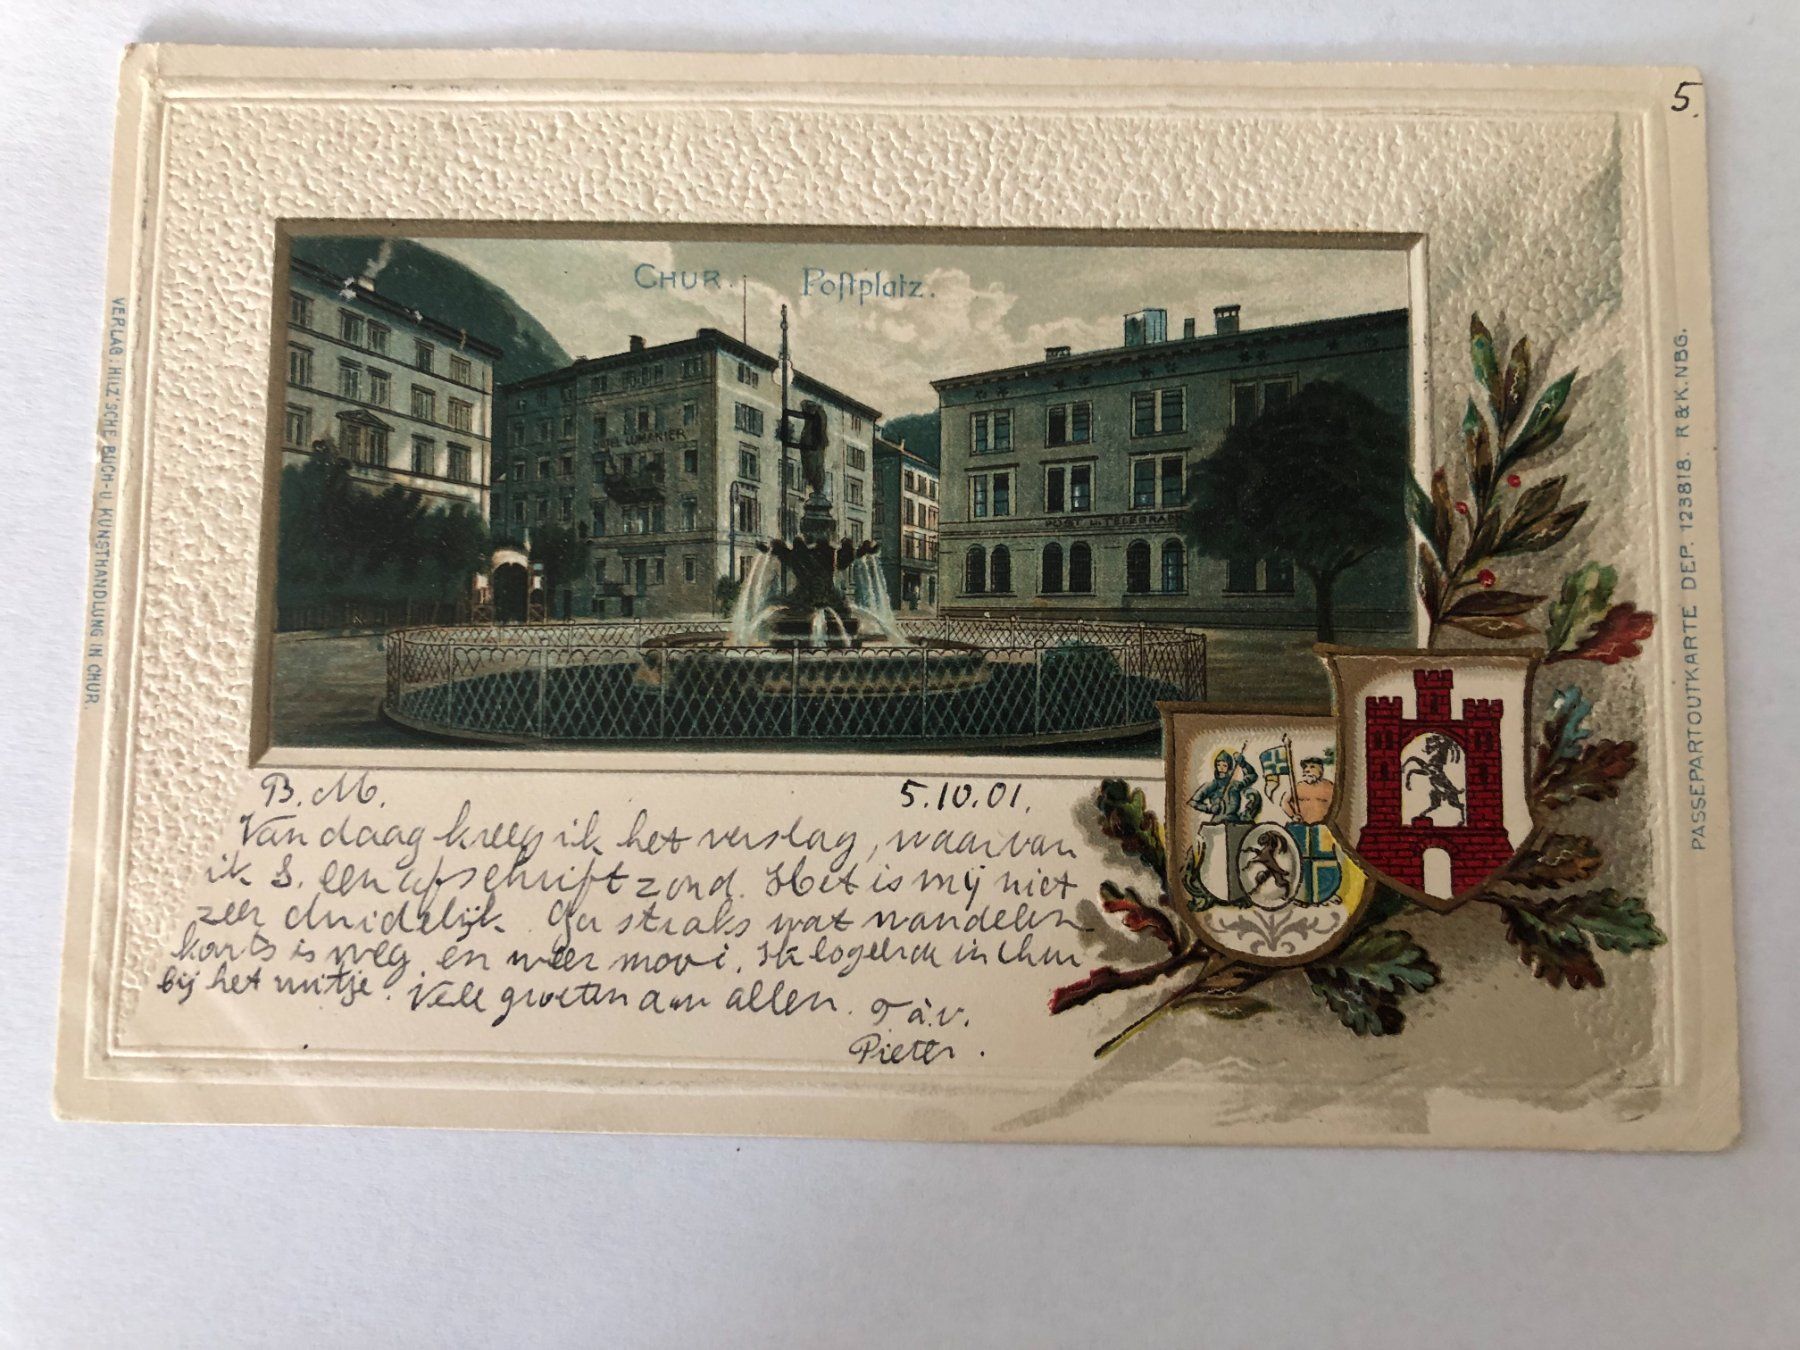 5.
CHUR. Postplatz.
HOTEL LUKMANIER
POST U. TELEGRAPH
VERLAG: HILZ'SCHE BUCH- U. KUNSTHANDLUNG IN CHUR.
PASSEPARTOUTKARTE DEP. 123818. R & K. NBG.
B. M. 5.10.01.
Van daag kreeg ik het verslag, waarvan
ik S. een afschrift zond. Het is mij niet
zeer duidelijk. Ga straks wat wandelen
koorts is weg en weer mooi. Ik logeerde in Chur
bij het Vele groeten aan allen. T. à. v.
Pieter.